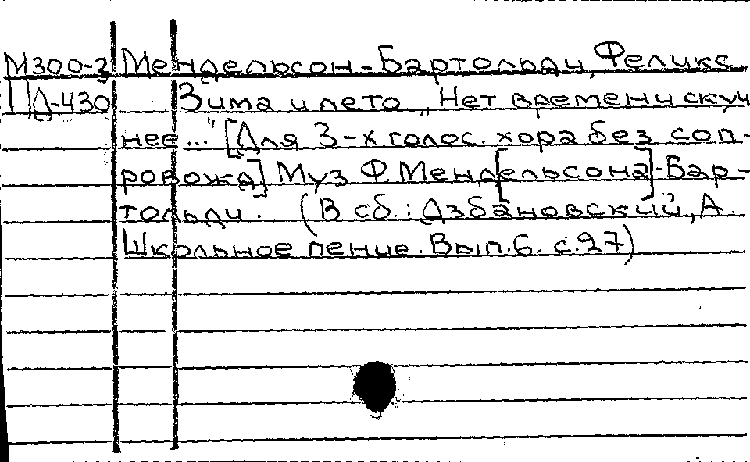 М300-3 Мендельсон-Бартольди, Феликс
Д-430 Зима и лето „Нет времени скуч
нее..." [Для 3-х голос. хора без соп-
ровожд] Муз Ф. Менд[ельсона]-Бар-
тольди. (В сб.: Дзбановский, А.
Школьное пение. Вып. 6. с. 27)